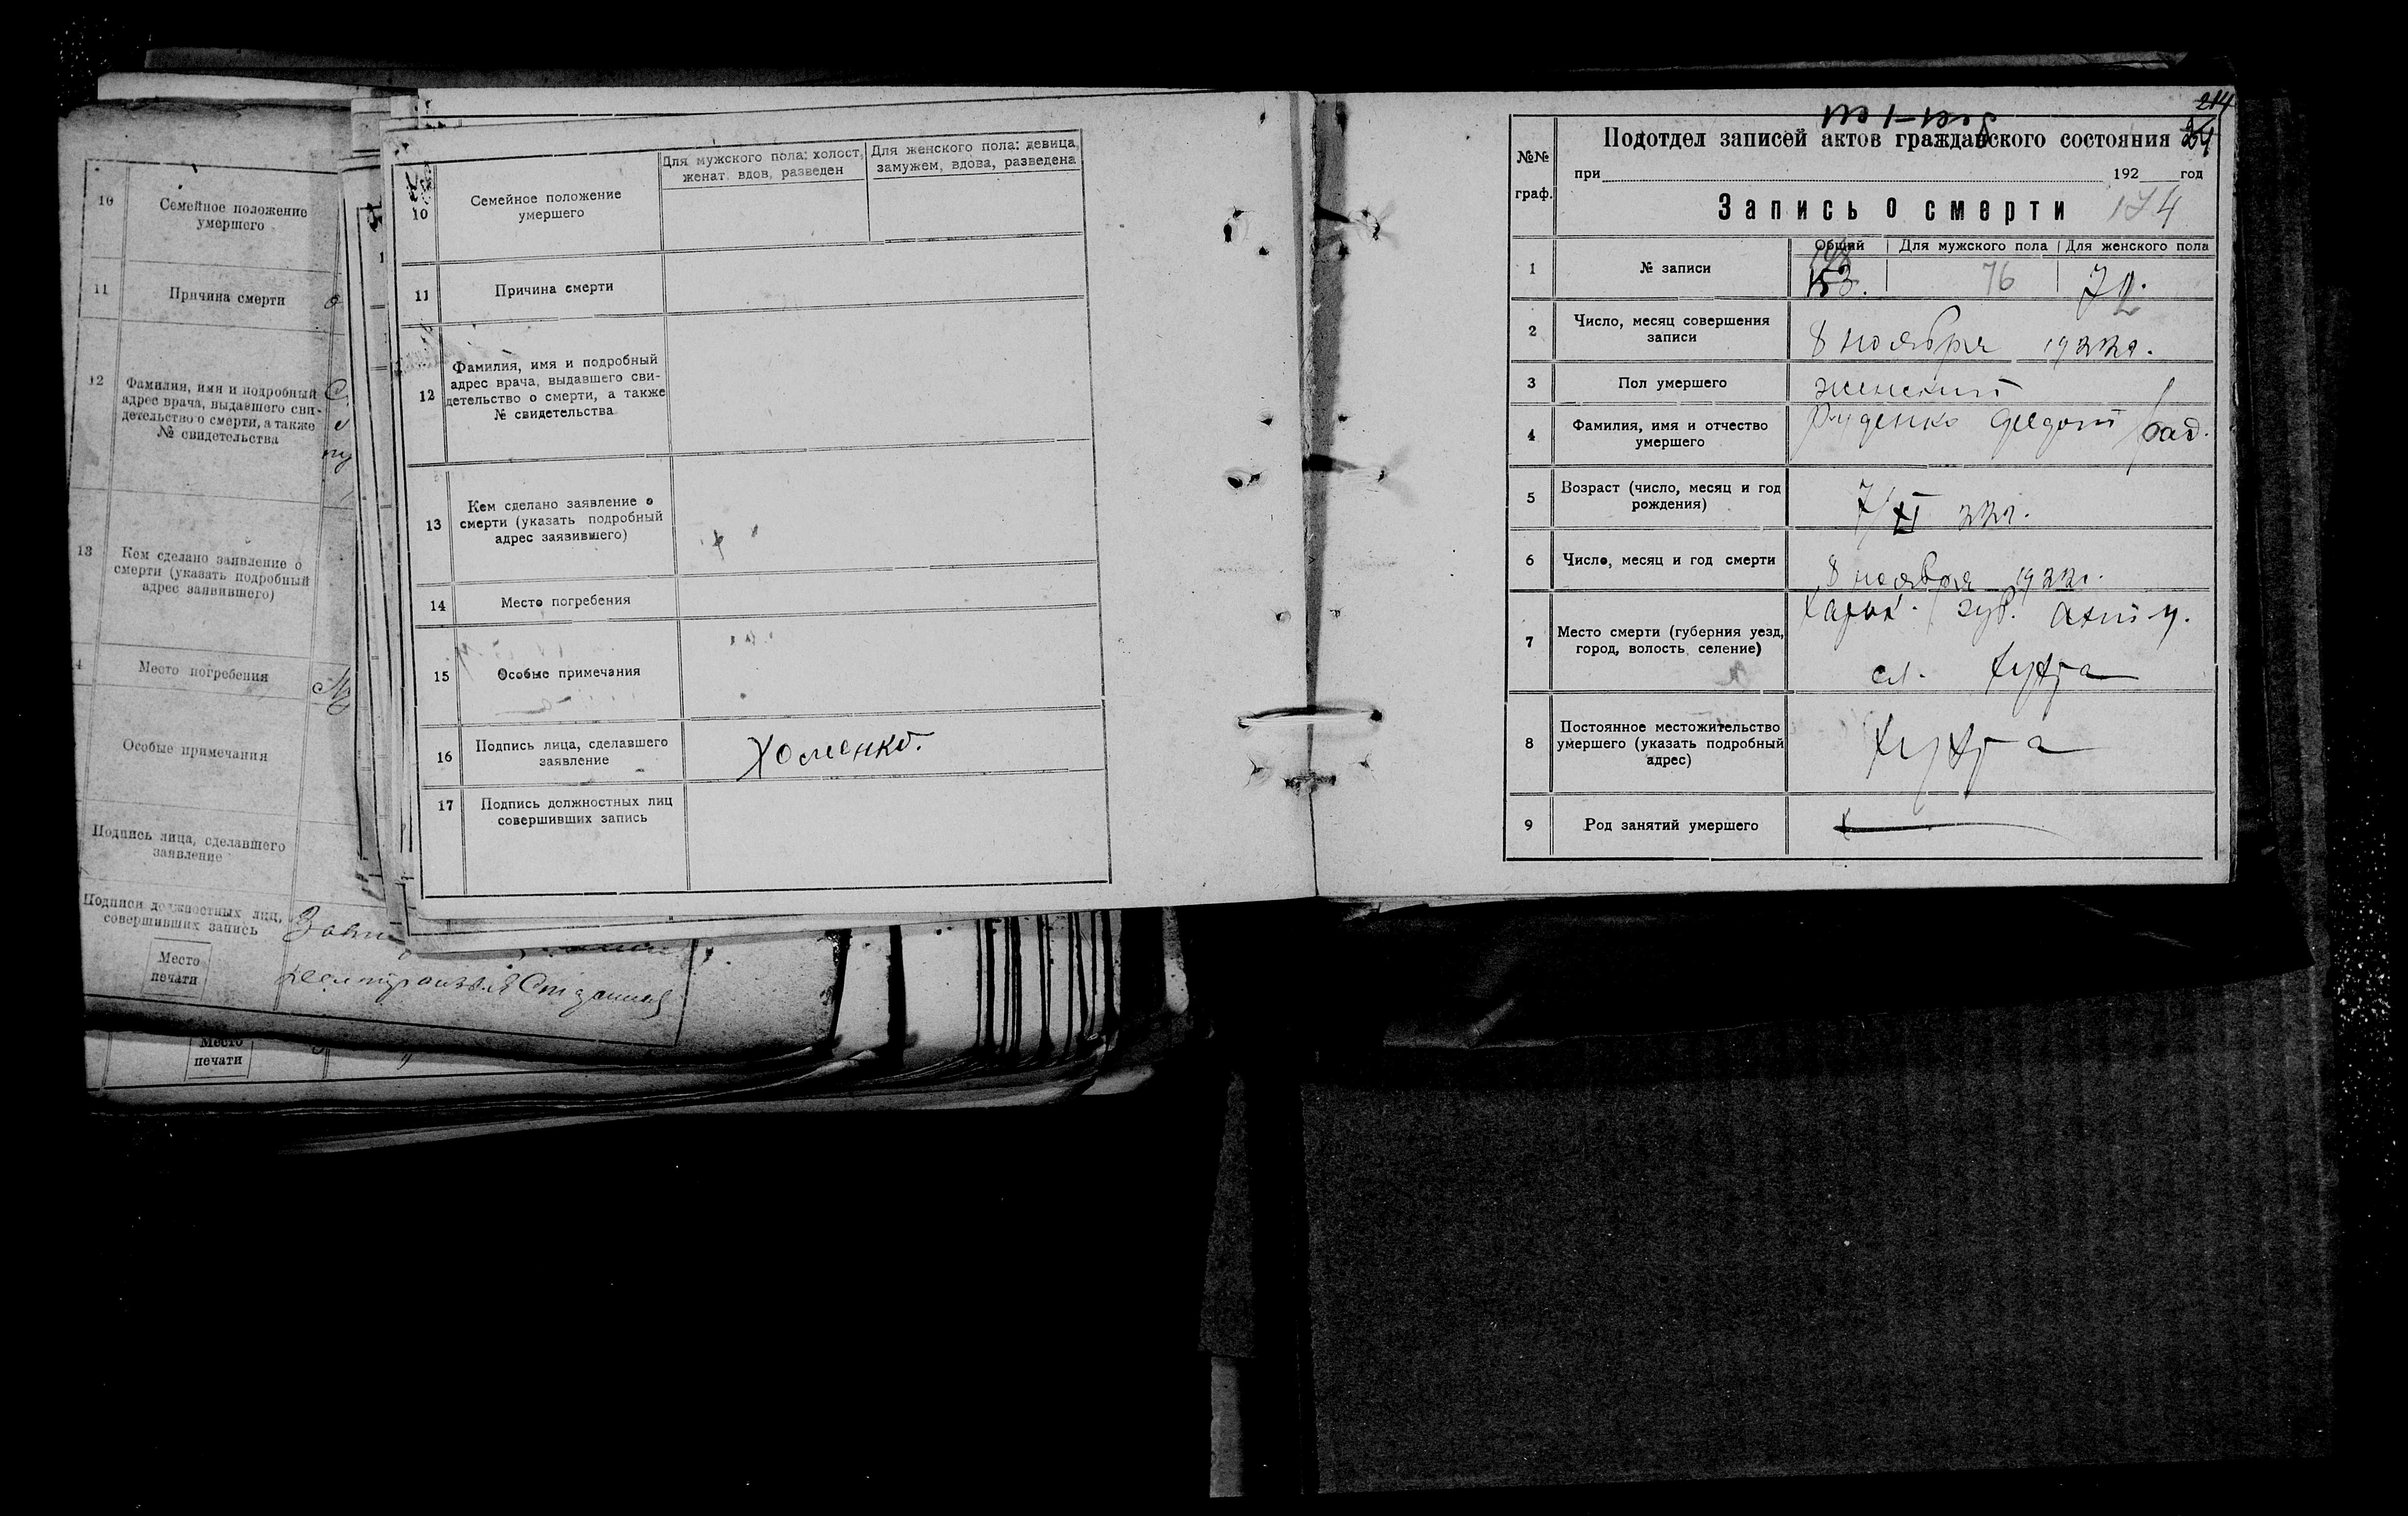 10
Семейное положение
умершего
11
Причина смерти
12
Фамилия, имя и подробный
адрес врача, выдавшего сви-
детельство о смерти, а также
№ свидетельства
13
Кем сделано заявление о
смерти (указать подробный
адрес заявившего)
4
Место погребения
Особые примечания
Подпись лица, сделавшего
заявление
Подписи должностных лиц,
совершивших запись
Место
печати
Место
печати
10
Семейное положение
умершего
Для мужского пола: холост,
женат, вдов, разведен
Для женского пола: девица,
замужем, вдова, разведена
11
Причина смерти
12
Фамилия, имя и подробный
адрес врача, выдавшего сви-
детельство о смерти, а также
№ свидетельства
13
Кем сделано заявление о
смерти (указать подробный
адрес заязившего)
14
Место погребения
15
Особые примечания
16
Подпись лица, сделавшего
заявление
Хоменко.
17
Подпись должностных лиц
совершивших запись
214
№№
граф.
Подотдел записей актов гражданского состояния
при 192 год
Запись о смерти 174
1
№ записи
Общий Для мужского пола Для женского пола
153. 76 72.
2
Число, месяц совершения
записи
8 ноября 1922г.
3
Пол умершего
женский
4
Фамилия, имя и отчество
умершего
Руденко Федот
5
Возраст (число, месяц и год
рождения)
7/XI 22г.
6
Число, месяц и год смерти
8 ноября 1922г.
7
Место смерти (губерния уезд,
город, волость, селение)
Харьк. губ. Ахт у.
сл. Хухра
8
Постоянное местожительство
умершего (указать подробный
адрес)
Хухра
9
Род занятий умершего